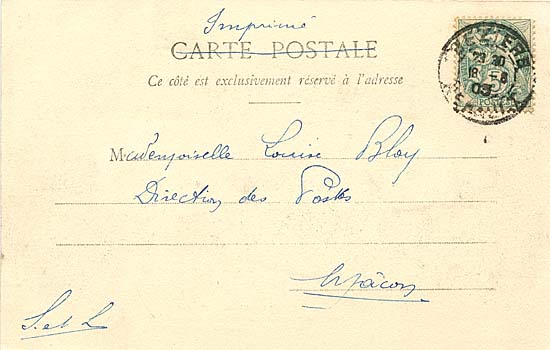 Imprimé
CARTE POSTALE
Ce côté est exclusivement réservé à l'adresse
Mademoiselle Louise Bloy
Direction des Postes
Mâcon
S. et L
BEZIERS
18 - 8
03
HERAULT
POSTES